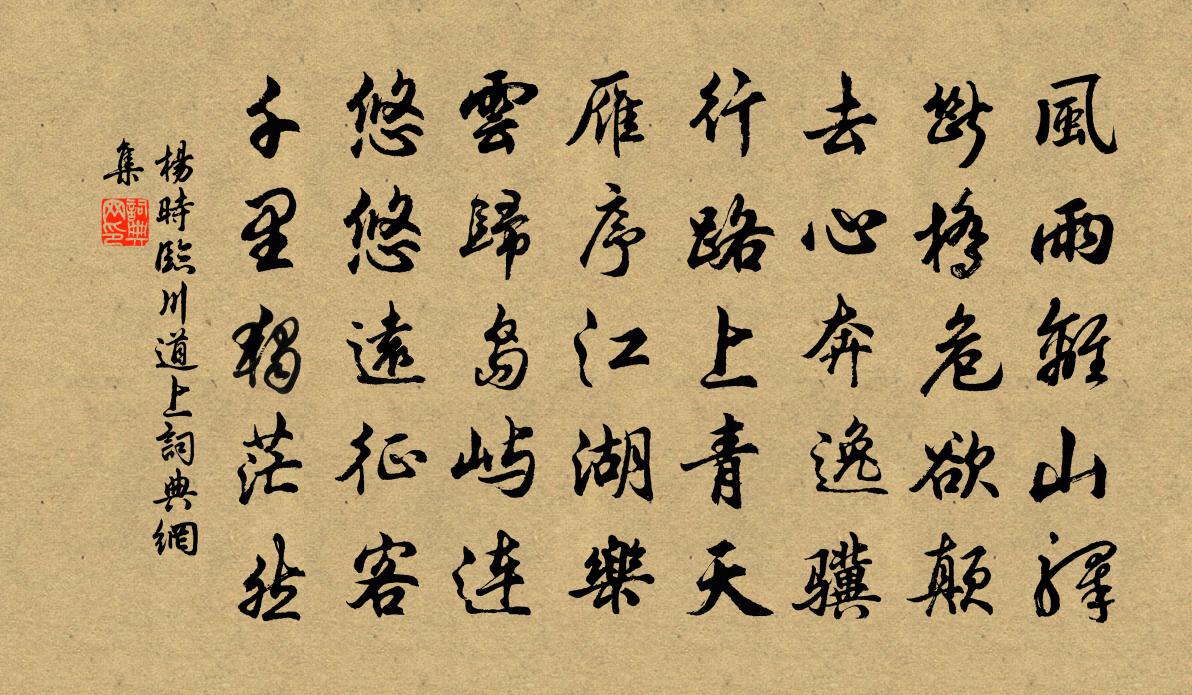 風雨離山驛
斷橋危欲顛
去心奔逸驥
行路上青天
雁序江湖樂
雲歸島嶼連
悠悠遠征客
千里獨茫然
楊時臨川道上詞典網
集
詞典
网印